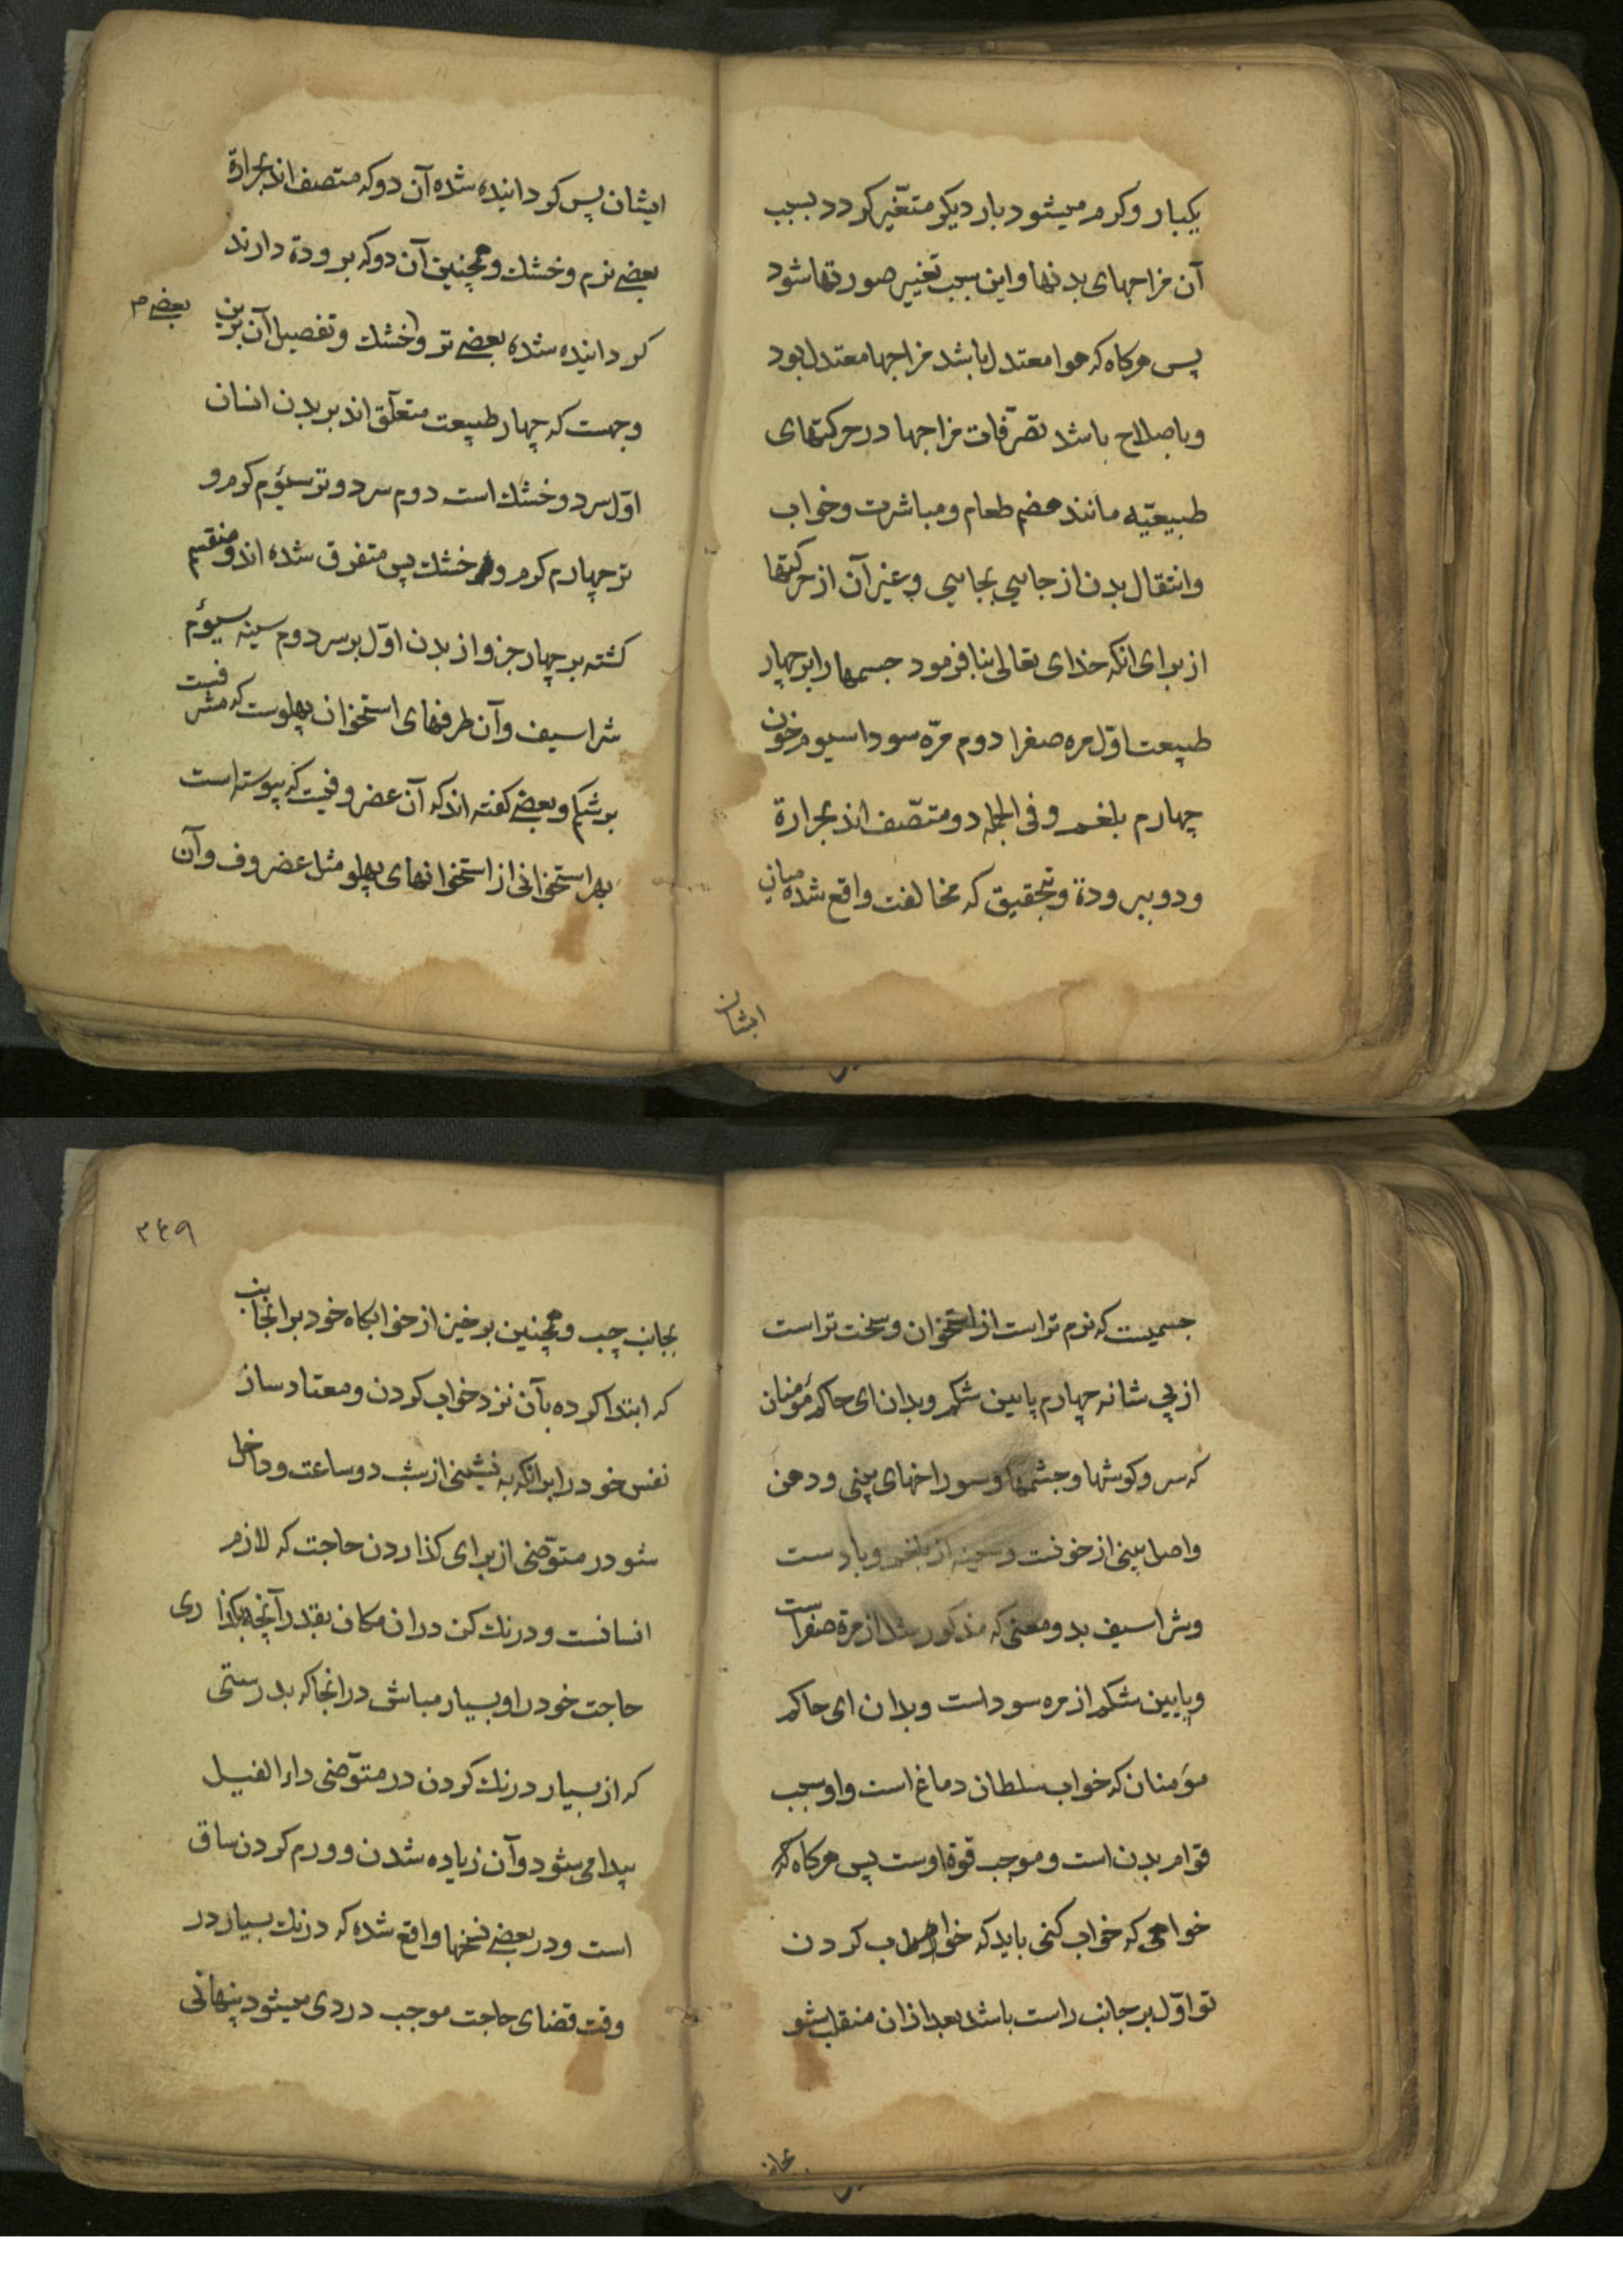 یکبار و کرم میشود بار دیکر متغیّر کردد بسبب
آن مزاجهای بدنها و این سبب تغییر صورتها شود
پس هرکاه که هوا معتدل باشد مزاجها معتدل بود
و باصلاح باشد تصرّفات مزاجها در حرکتهای
طبیعیّه مانند هضم طعام و مباشرت و خواب
و انتقال بدن از جایی بجایی و غیر آن از حرکتها
از برای انکه خدای تعالی بنا فرمود جسمها را بر چهار
طبیعت اوّل مره صفرا دوم مرّه سودا سیوم خون
چهارم بلغم و فی الجمله دو متّصف اند بحرارة
و دو ببرودة و بتحقیق که مخالفت واقع شده میان
ایشان
ایشان پس کردانیده شده آن دو که متصف اند بحرارة
بعضے نرم و خشك و همچنین آن دو که برودة دارند
کردانیده شده بعضے تر و خشك و تفصیل آن برین
بعضے م
وجهست که چهار طبیعت متعلّق اند بر بدن انسان
اوّل سرد و خشك است دوم سرد و تر سیؤم کرم و
تر چهارم کرم و خشك پس متفرق شده اند و منقسم
کشته بر چهار جزو از بدن اوّل بر سر دوم سینه سیؤم
شراسیف و آن طرفهای استخوان پهلوست که مشرفست
بر شکم و بعضے کفته اند که آن غضروفیست که پیوسته است
بهر استخوانی از استخوانهای پهلو مثل غضروف و آن
جسمیست که نرم تر است از استخوان و سخت تر است
از پی شانه چهارم پایین شکم و بدان ای حاکم مؤمنان
که سر و کوشها و چشمها و سوراخهای بینی و دهن
و اصل بینی از خونست و سینه از بلغم و بادست
و شراسیف بدو معنی که مذکور شد از مرة صفراست
و پایین شکم از مره سوداست و بدان ای حاکم
مؤمنان که خواب سلطان دماغ است و او سبب
قوام بدن است و موجب قوة اوست پس هرکاه که
خواهی که خواب کنی باید که خواب کردن
تو اوّل بر جانب راست باشد بعد ازان منقلب شو
بجانب
٣٤٩
بجانب چپ و همچنین برخیز از خوابکاه خود بر انجانب
که ابتدا کرده بآن نزد خواب کردن و معتاد ساز
نفس خود را بر انکه به نشینی از شب دو ساعت و داخل
شو در متوّضی از برای کذاردن حاجت که لازم
انسانست و درنك کن دران مکان بقدر آنچه بکذاری
حاجت خود را و بسیار مباش در انجا که بدرستی
که از بسیار درنك کردن در متوّضی داء الفیل
پیدا می شود و آن زیاده شدن و ورم کردن ساق
است و در بعضے نسخها واقع شده که درنك بسیار در
وقت قضای حاجت موجب دردی میشود پنهانی